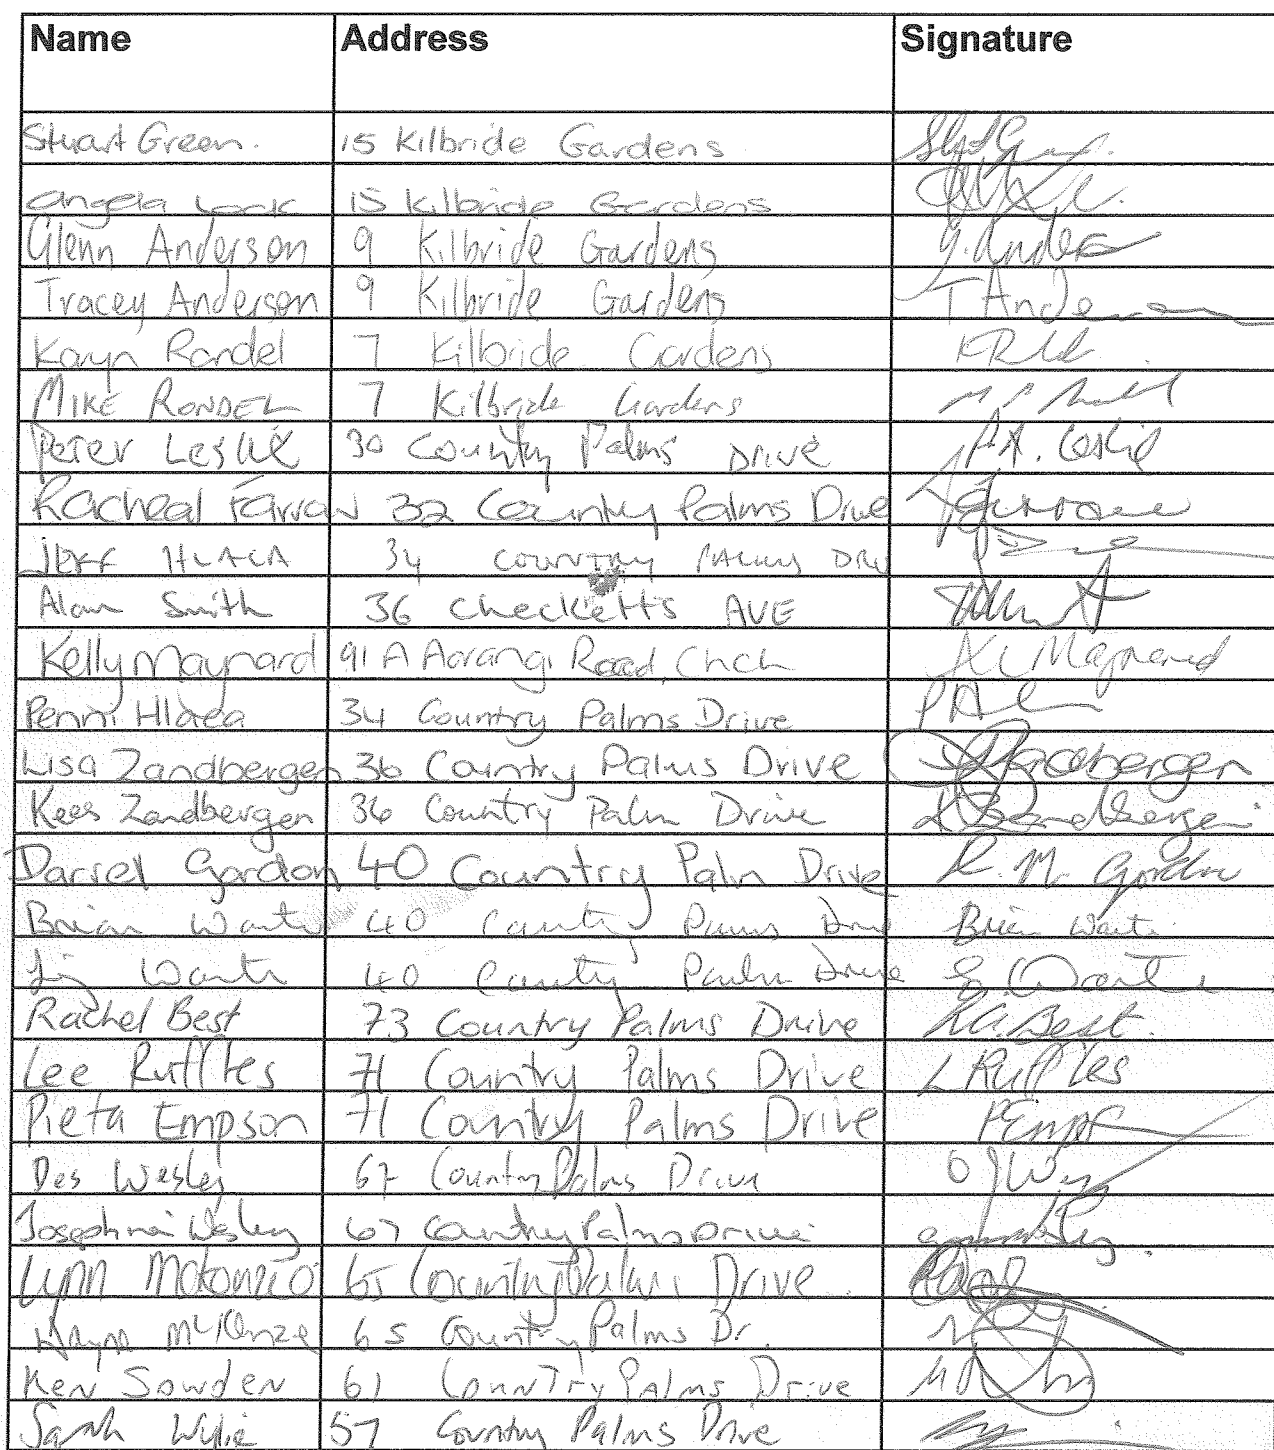 Name Address Signature
Stuart Green. 15 Kilbride Gardens
Angela Lock 15 Kilbride Gardens
Glenn Anderson 9 Kilbride Gardens G. Anders
Tracey Anderson 9 Kilbride Gardens T Anderson
Karyn Rondel 7 Kilbride Gardens
MIKE RONDEL 7 Kilbride Gardens
Peter Leslie 30 Country Palms Drive P.A. Leslie
Racheal Farran 32 Country Palms Drive
JEFF HLACA 34 COUNTRY PALMS DRV
Alan Smith 36 Checketts AVE
Kelly Maynard 91 A Aorangi Road, Chch K Maynard
Penni Hlaca 34 Country Palms Drive
Lisa Zandbergen 36 Country Palms Drive Zandbergen
Kees Zandbergen 36 Country Palm Drive K Zandbergen
Darrel Gordon 40 Country Palm Drive D. M. Gordon
Brian 40 County Palms Drive Brian
40 County Palm Drive
Rachel Best 73 Country Palms Drive R.A. Best.
Lee Ruffles 71 Country Palms Drive L Ruffles
Pieta Empson 71 Country Palms Drive P Emps
Des Wesley 67 Country Palms Drive
Josephine Wesley 67 Country Palms Drive
Lynn McKenzie 65 Country Palms Drive
Wayne McKenzie 65 Country Palms Dr.
Ken Sowden 61 Country Palms Drive
Sarah Wylie 57 Country Palms Drive